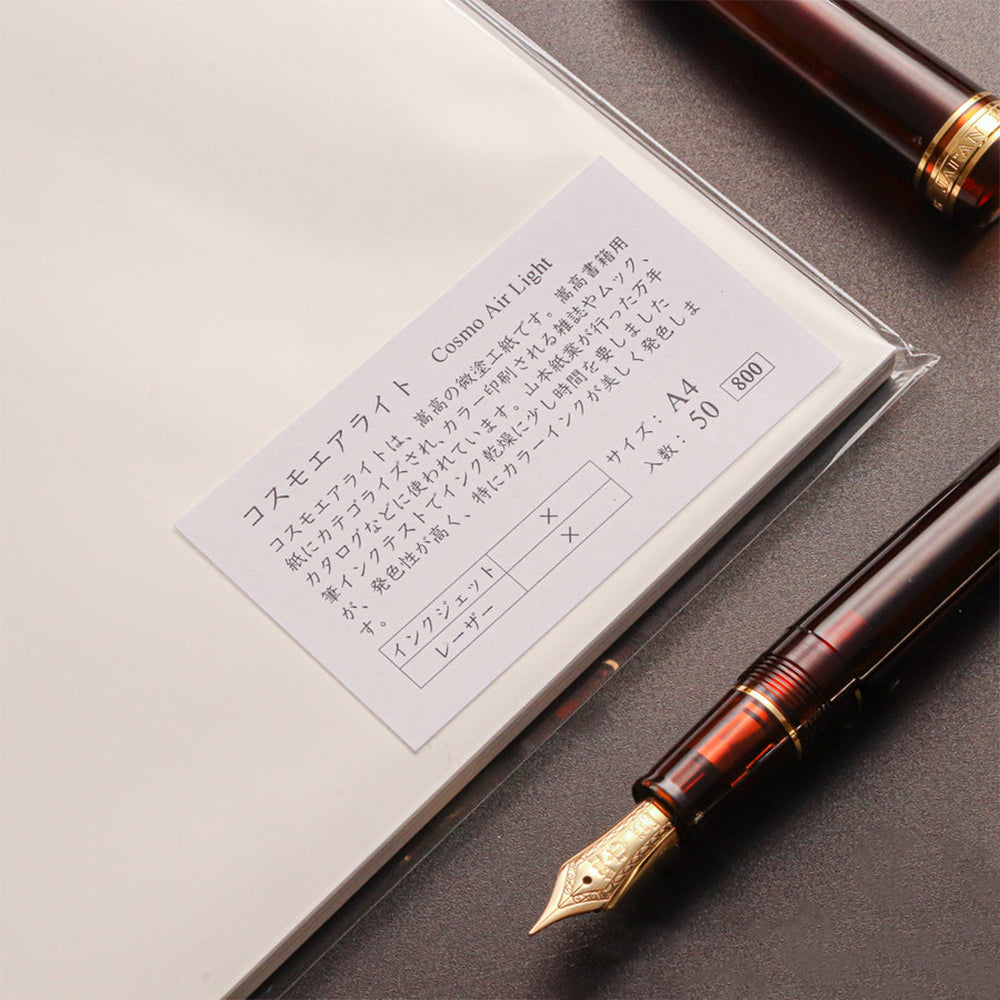 コスモエアライト Cosmo Air Light
コスモエアライトは、嵩高の微塗工紙です。嵩高書籍用
紙にカテゴライズされ、カラー印刷される雑誌やムック、
カタログなどに使われています。山本紙業が行った万年
筆インクテストでインク乾燥に少し時間を要しました
が、発色性が高く、特にカラーインクが美しく発色しま
す。
インクジェット ×
レーザー ×
サイズ: A4
入数: 50
800
JAPAN